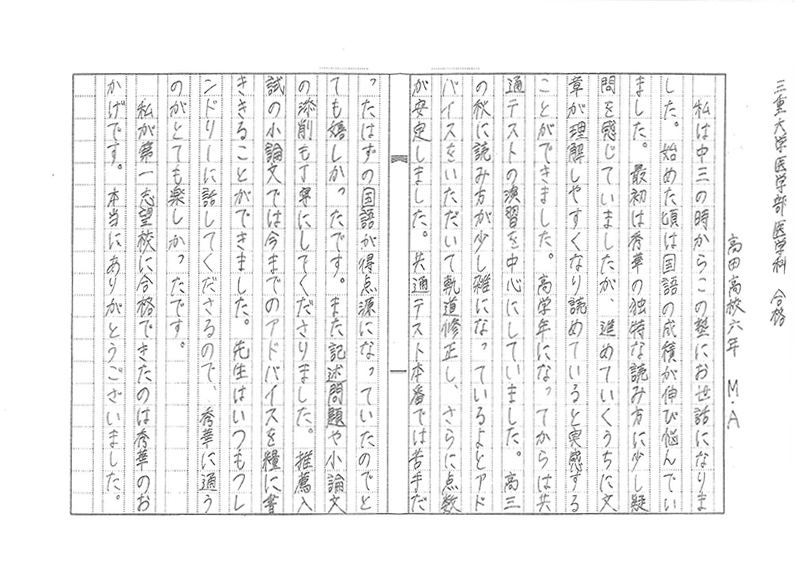 三重大学医学部医学科 合格
高田高校六年 M・A
私は中三の時からこの塾にお世話になりま
した。始めた頃は国語の成積が伸び悩んでい
ました。最初は秀華の独特な読み方に少し疑
問を感じていましたが、進めていくうちに文
章が理解しやすくなり読めていると実感する
ことができました。高学年になってからは共
通テストの演習を中心にしていました。高三
の秋に読み方が少し雑になっているよとアド
バイスをいただいて軌道修正し、さらに点数
が安定しました。共通テスト本番では苦手だ
ったはずの国語が得点源になっていたのでと
ても嬉しかったです。また記述問題や小論文
の添削も丁寧にしてくださりました。推薦入
試の小論文では今までのアドバイスを糧に書
ききることができました。先生はいつもフレ
ンドリーに話してくださるので、秀華に通う
のがとても楽しかったです。
私が第一志望校に合格できたのは秀華のお
かげです。本当にありがとうございました。